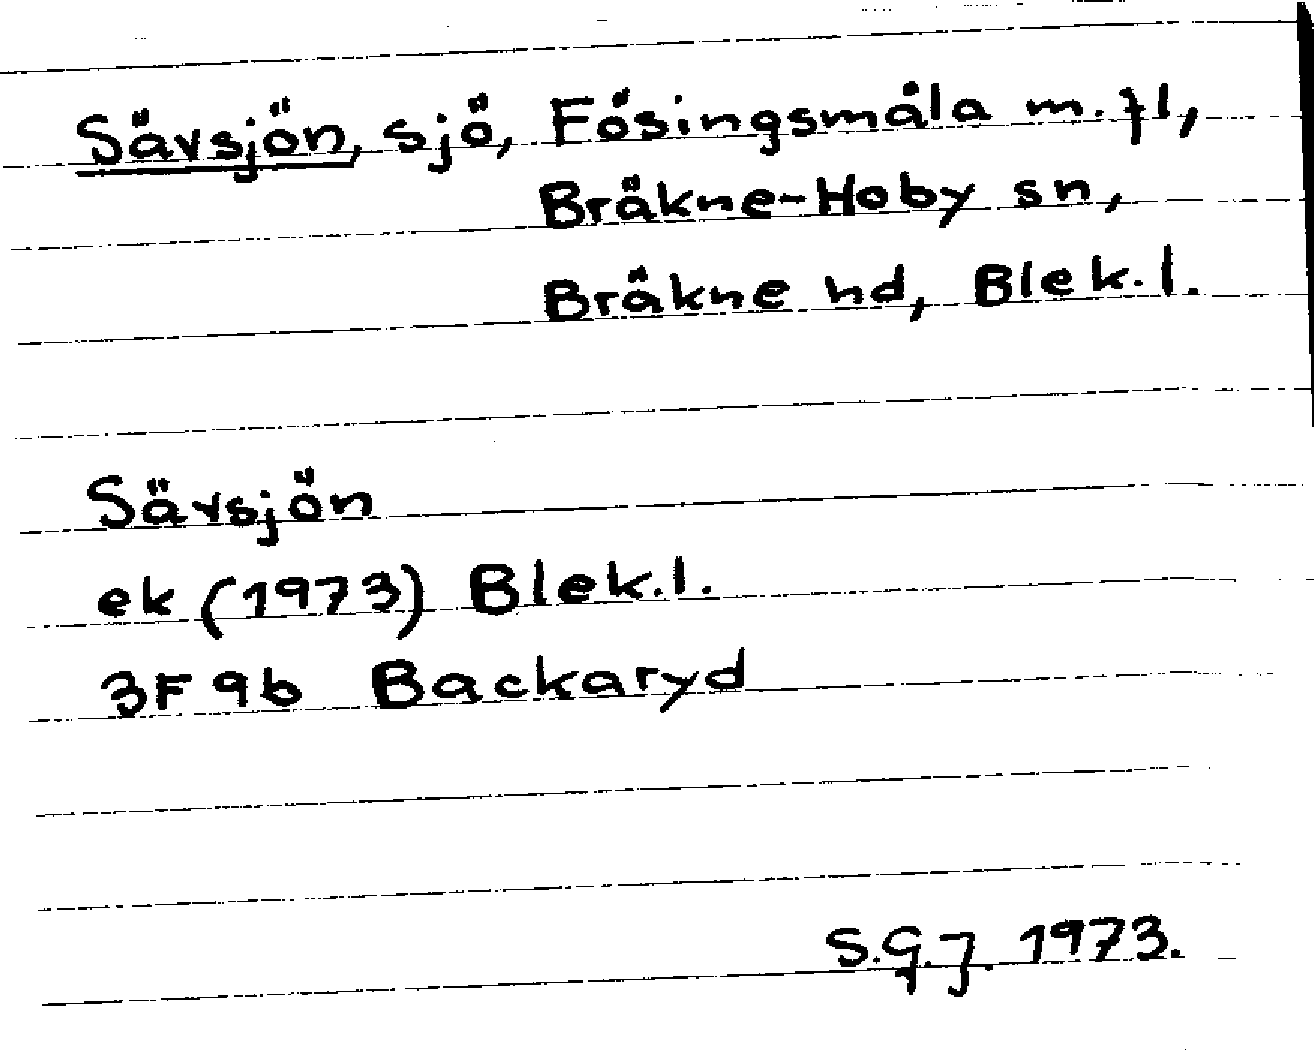 Sävsjön, sjö, Fösingsmåla m. fl,
Bräkne-Hoby sn,
Bräkne hd, Blek. l.
Sävsjön
ek (1973) Blek. l.
3F 9b Backaryd
S.G.J. 1973.